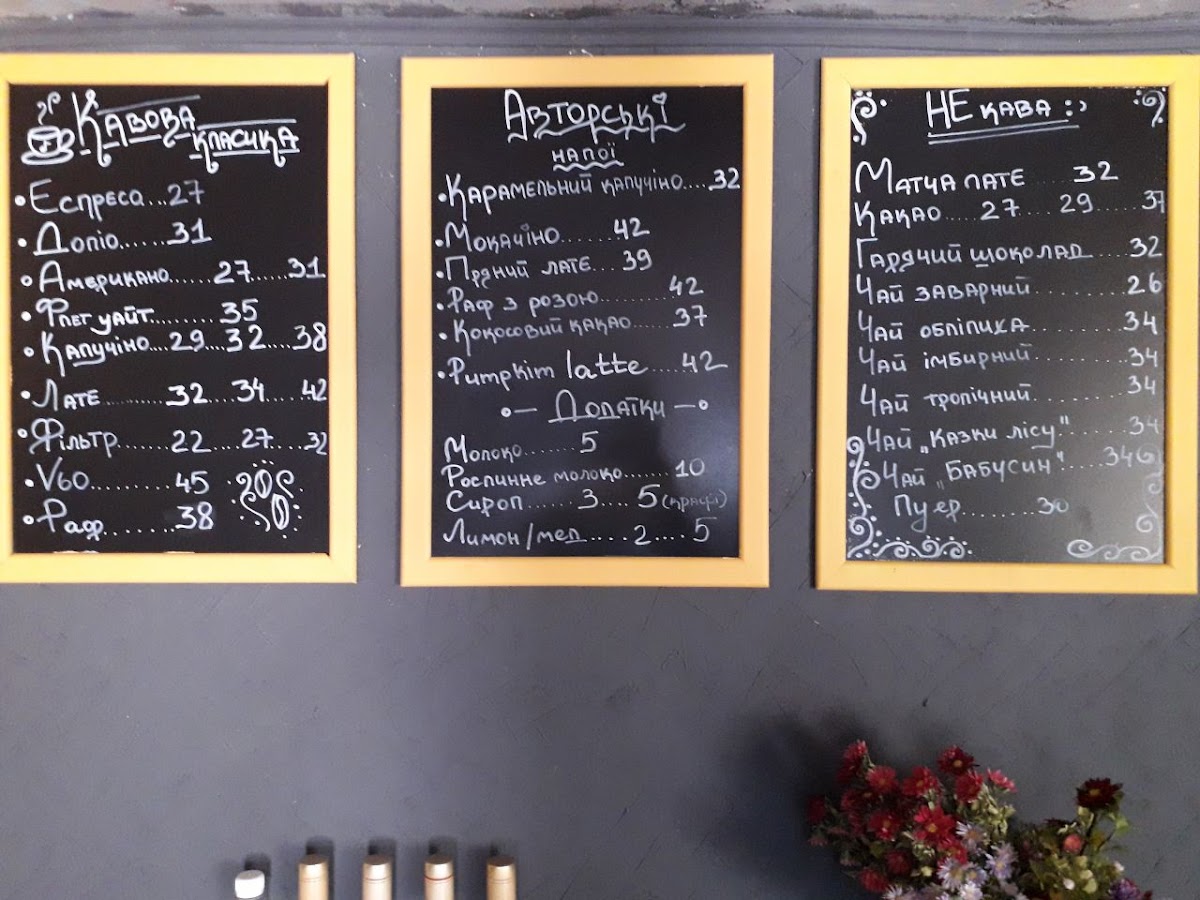 Кавова
класика
• Еспресо...27
• Допіо......31
• Американо......27......31
• Флет уайт........35
• Капучіно....29...32...38
• Лате........32....34....42
• Фільтр......22....27....32
• V60..........45
• Раф........38
Авторські
напої
• Карамельний капучіно....32
• Мокачіно.......42
• Пряний лате...39
• Раф з розою........42
• Кокосовий какао......37
• Pumpkim latte....42
Додатки
Молоко......5
Рослинне молоко.......10
Сироп......3....5(крафт)
Лимон/мед....2....5
НЕ кава :)
Матча лате....32
Какао....27....29....37
Гарячий шоколад....32
Чай заварний..........26
Чай обліпиха..........34
Чай імбирний..........34
Чай тропічний..........34
Чай „Казки лісу"......34
Чай „Бабусин".....34
Пуер.........30